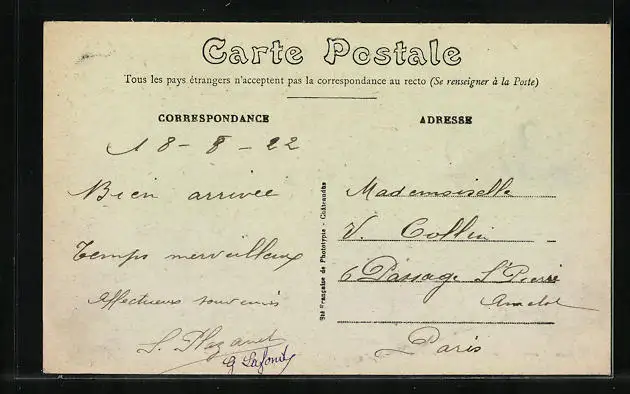 Carte Postale
Tous les pays étrangers n'acceptent pas la correspondance au recto (Se renseigner à la Poste)
CORRESPONDANCE
18 - 8 - 22
Bien arrivée
Temps merveilleux
Affectueux souvenirs
Sté Française de Phototypie - Châteaudun
ADRESSE
Mademoiselle
V. Collin
6 Passage St Pierre
Amelot
Paris